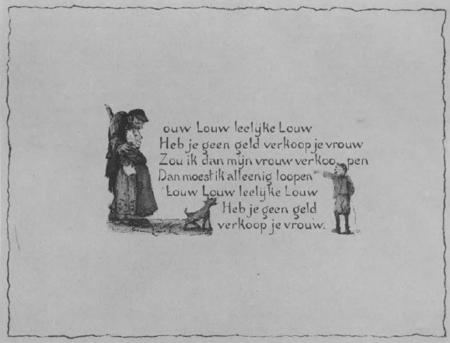 ouw Louw leelijke Louw
Heb je geen geld verkoop je vrouw
Zou ik dan mijn vrouw verkoopen
Dan moest ik alleenig loopen
Louw Louw leelijke Louw
Heb je geen geld
verkoop je vrouw.